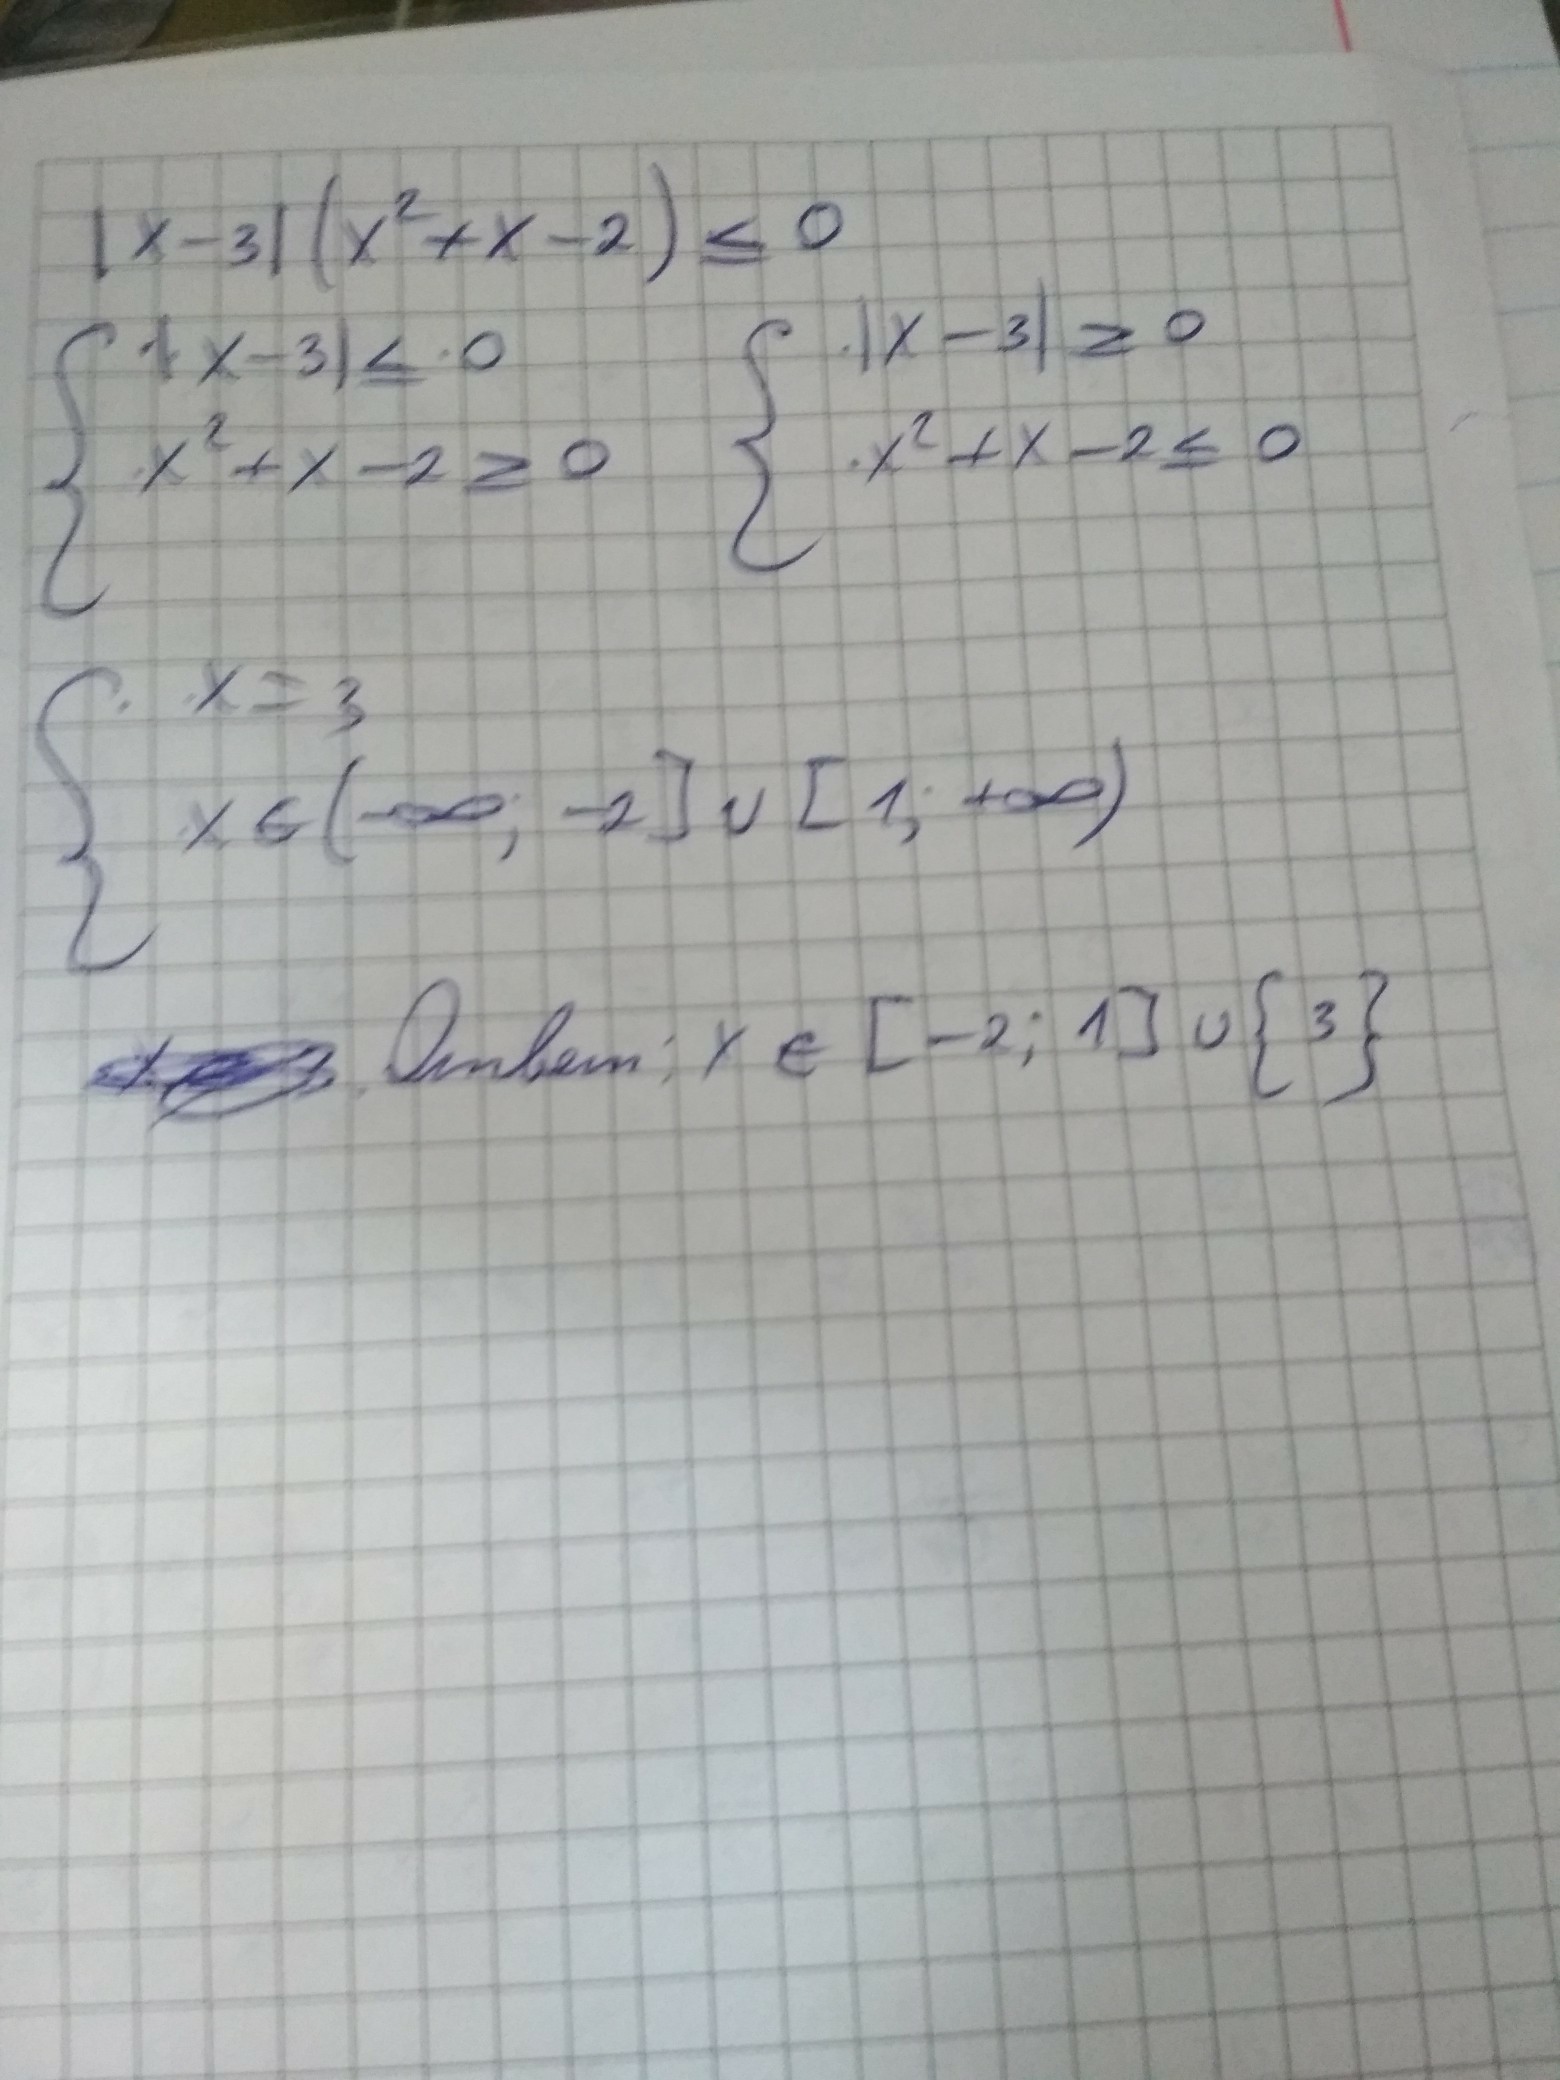 |x-3|(x²+x-2) ≤ 0
{ |x-3| ≤ 0
x²+x-2 ≥ 0
{ |x-3| ≥ 0
x²+x-2 ≤ 0
{ x=3
x ∈ (-∞; -2] ∪ [1; +∞)
Ответ: x ∈ [-2; 1] ∪ {3}